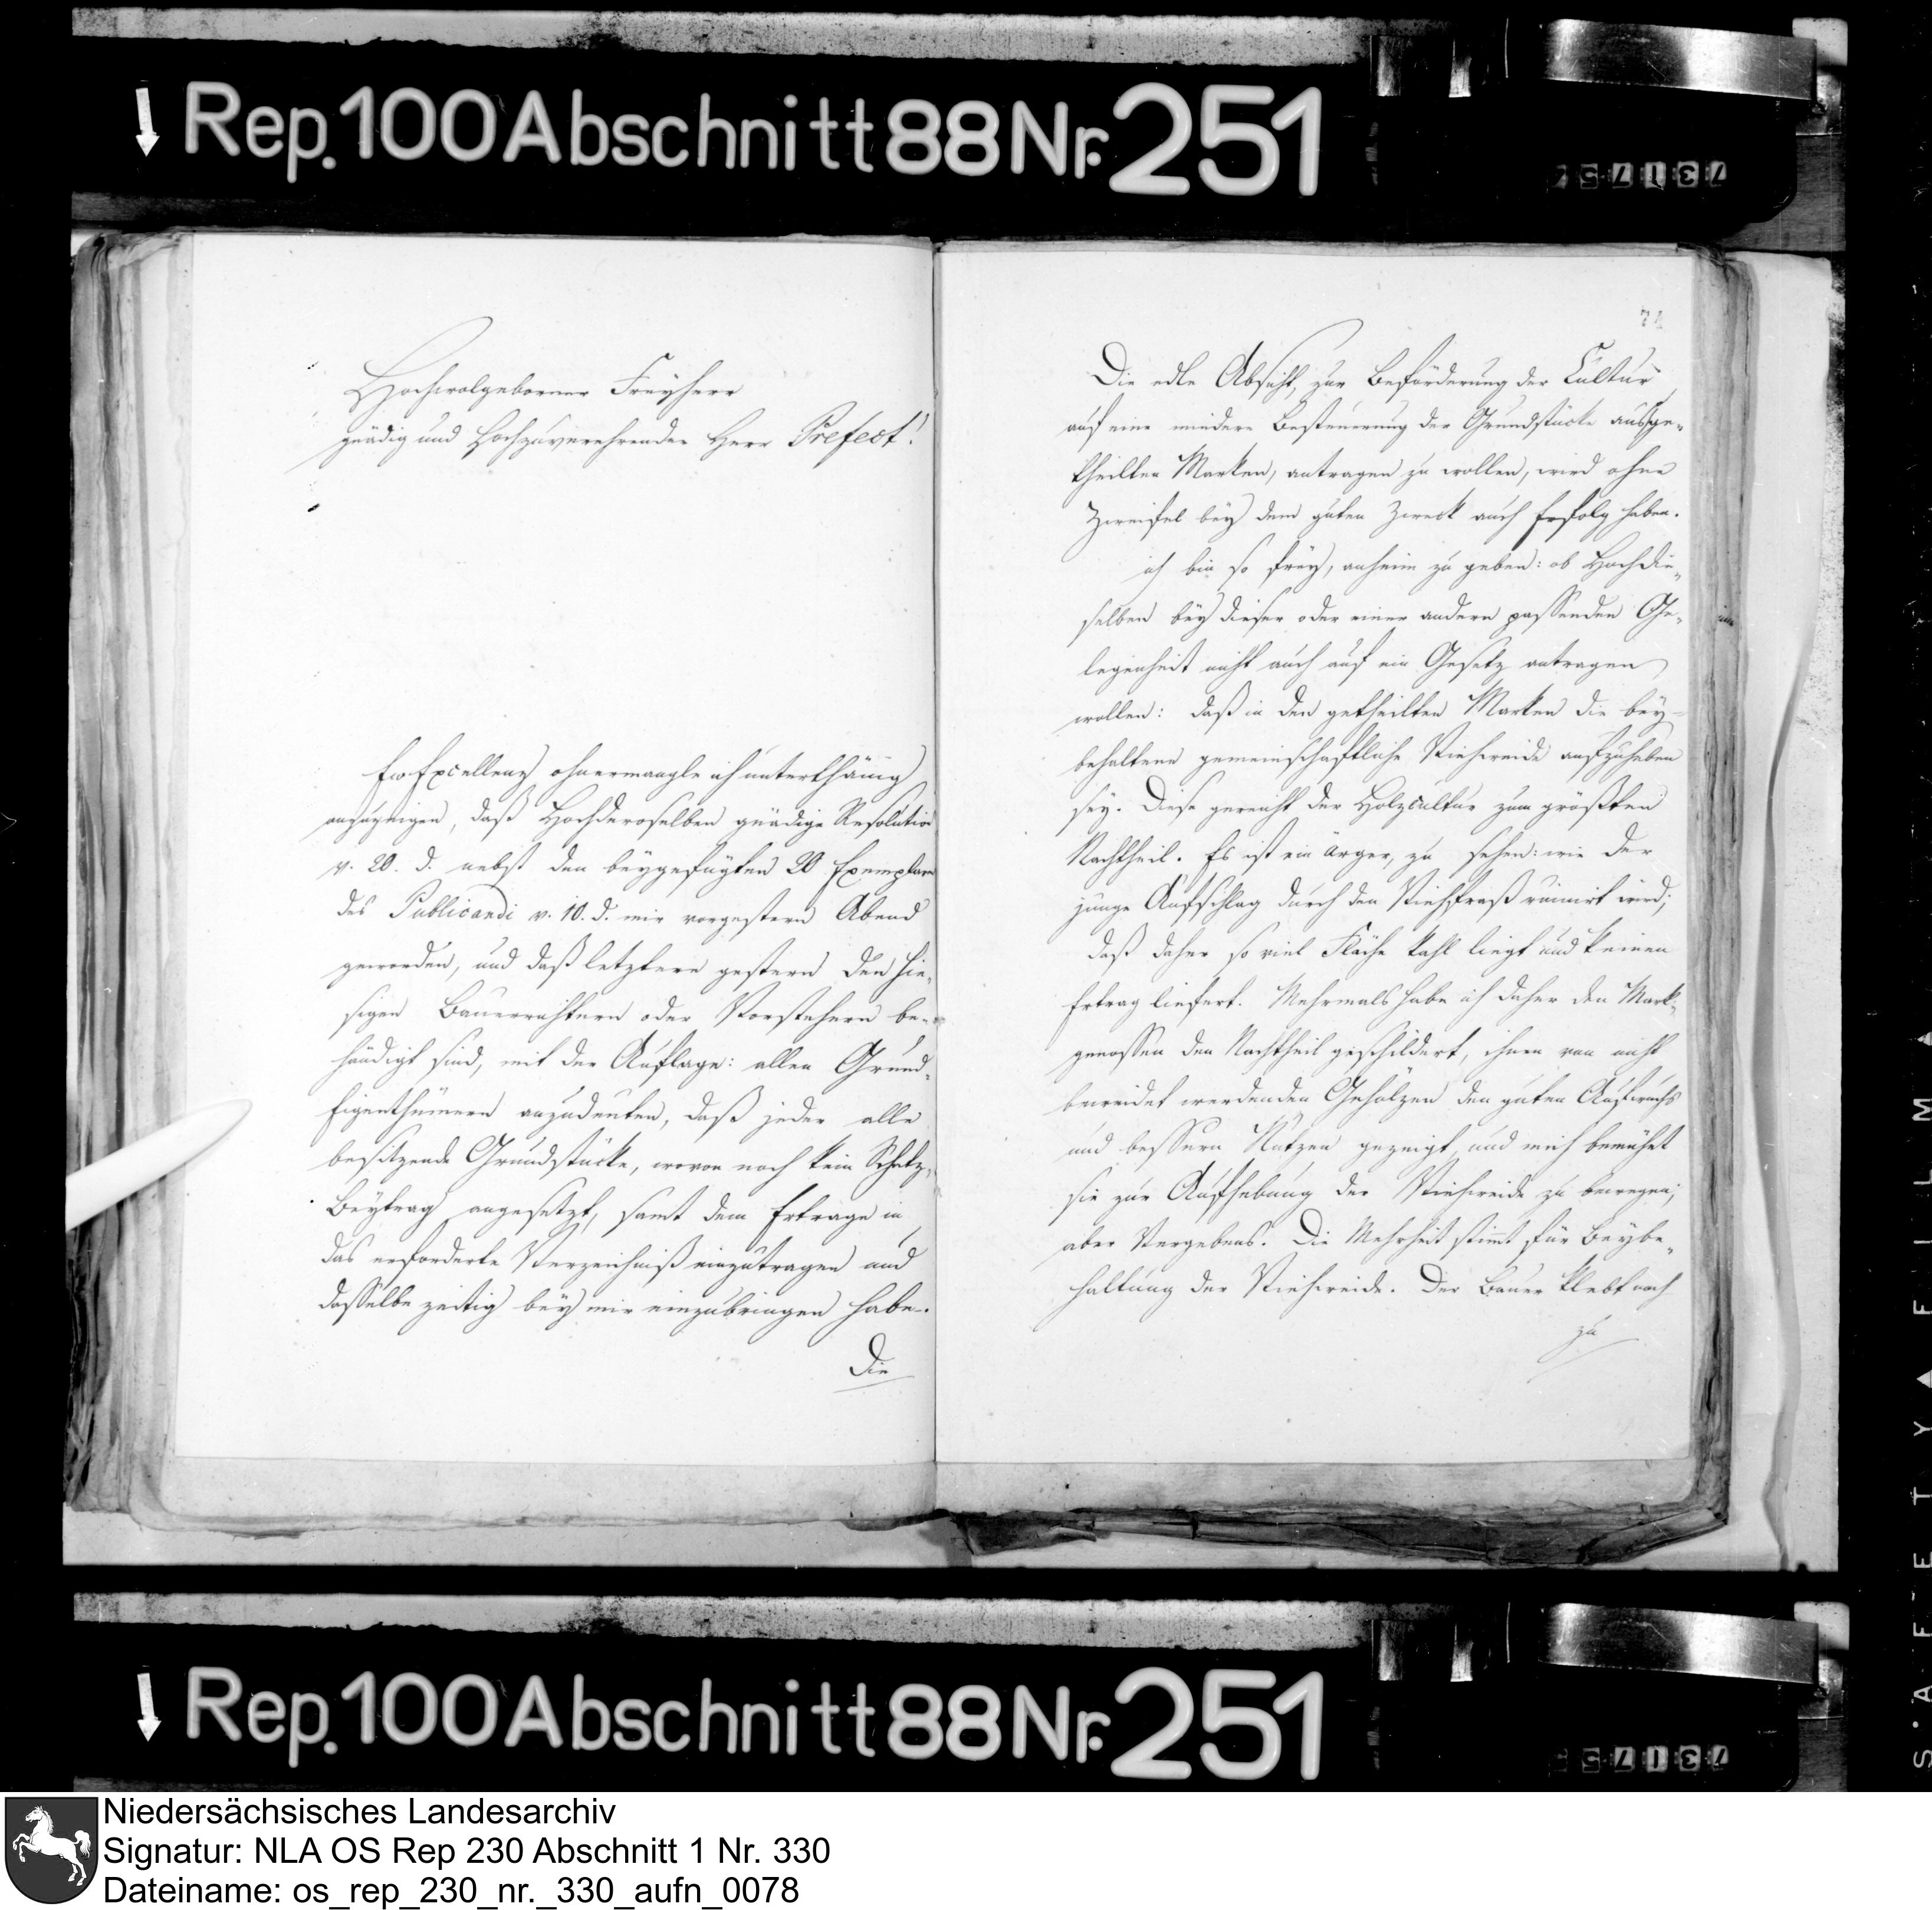 Rep. 100 Abschnitt 88 Nr. 251
Hochwolgeborner Freyherr
gnädig und Hochzuverehrender Herr Prefect!
Ew Excellenz ohnermangle ich unterthänig
anzuzeigen, daß Hochderoselben gnädige Resolution
v. 20. d. nebst den beygefügten 20 Exemplaren
des Publicandi v. 10. d. mir vorgestern Abend
geworden, und daß letztere gestern den hie-
sigen Bauerrichtern oder Vorstehern be-
händigt sind, mit der Auflage: allen Grund-
Eigenthümern anzudeuten, daß jeder alle
besitzende Grundstücke, wovon noch kein Schatz-
Beytrag angesetzt, samt dem Ertrage in
das erforderte Verzeichniß einzutragen und
dasselbe zeitig bey mir einzubringen habe.
Die
Die edle Absicht, zur Beförderung der Cultur
auf eine mindere Besteuerung der Grundstücke ausge-
theilter Marken, antragen zu wollen, wird ohne
Zweifel bey dem guten Zweck auch Erfolg haben.
ich bin so frey, anheim zu geben: ob Hochdie-
selben bey dieser oder einer andern passenden Ge-
legenheit nicht auch auf ein Gesetz antragen
wollen: daß in den getheilten Marken die bey-
behaltene gemeinschaftliche Viehweide aufzuheben
sey. Diese gereicht der Holzcultur zum größten
Nachtheil. Es ist ein ärger, zu sehen: wie der
junge Aufschlag durch den Viehfraß ruinirt wird;
daß daher so viel Fläche kahl liegt und keinen
Ertrag liefert. Mehrmals habe ich daher den Mark-
genossen den Nachtheil geschildert, ihnen von nicht
beweidet werdenden Gehölzen den guten Aufwuchs
und bessern Nutzen gezeigt und mich bemühet
sie zur Aufhebung der Viehweide zu bewegen;
aber Vergebens. Die Mehrheit stimt für Beybe-
haltung der Viehweide. Der Bauer klebt noch
zu
Rep. 100 Abschnitt 88 Nr. 251
Niedersächsisches Landesarchiv
Signatur: NLA OS Rep 230 Abschnitt 1 Nr. 330
Dateiname: os_rep_230_nr._330_aufn_0078